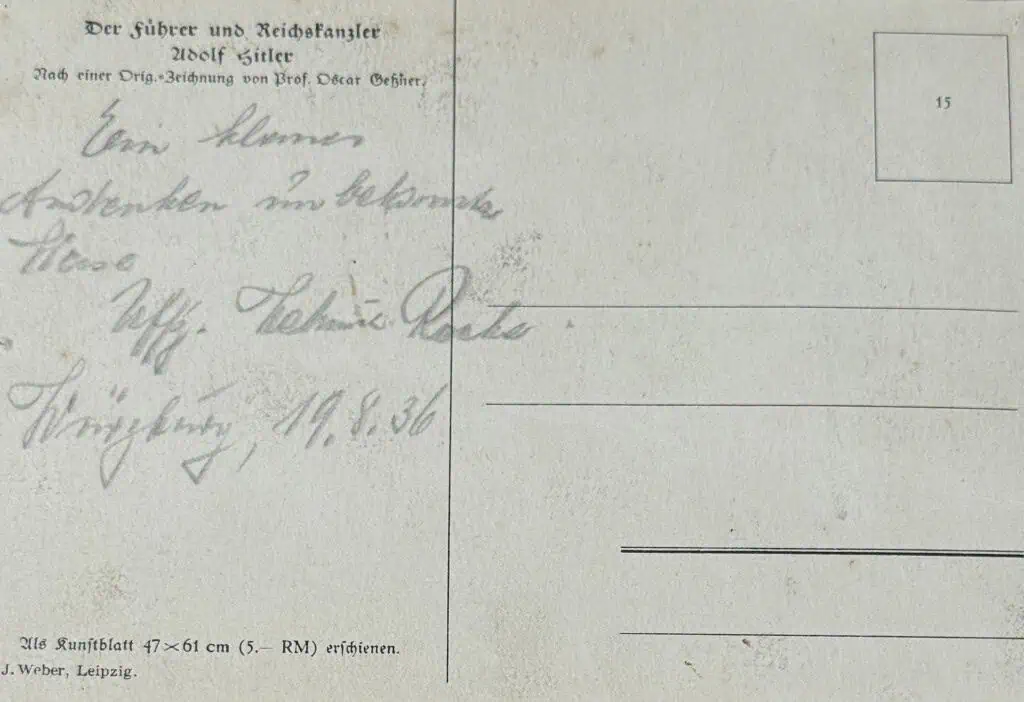 Der Führer und Reichskanzler
Adolf Hitler
Nach einer Orig.-Zeichnung von Prof. Oscar Geßner.
15
Ein kleines
Andenken
Weise
Uffz.
Würzburg, 19.8.36
Als Kunstblatt 47×61 cm (5.— RM) erschienen.
J. Weber, Leipzig.